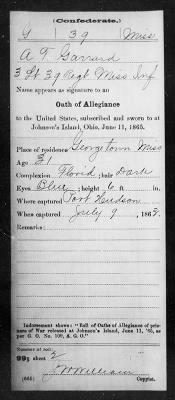 (Confederate.)
G | 39 | Miss.
A. T. Garrard
3 Lt 39 Regt. Miss. Inf
Name appears as signature to an
Oath of Allegiance
to the United States, subscribed and sworn to at
Johnson's Island, Ohio, June 11, 1865.
Place of residence Georgetown Miss
Age 31
Complexion Florid; hair Dark
Eyes Blue; height 6 ft. in.
Where captured Port Hudson
When captured July 9, 1863.
Remarks:
Indorsement shows: "Roll of Oaths of Allegiance of prisoners of War released at Johnson's Island, June 11, '65, as
per G. O. No. 109, A. G. O."
Number of roll:
99; sheet 2
J W William
(665) Copyist.